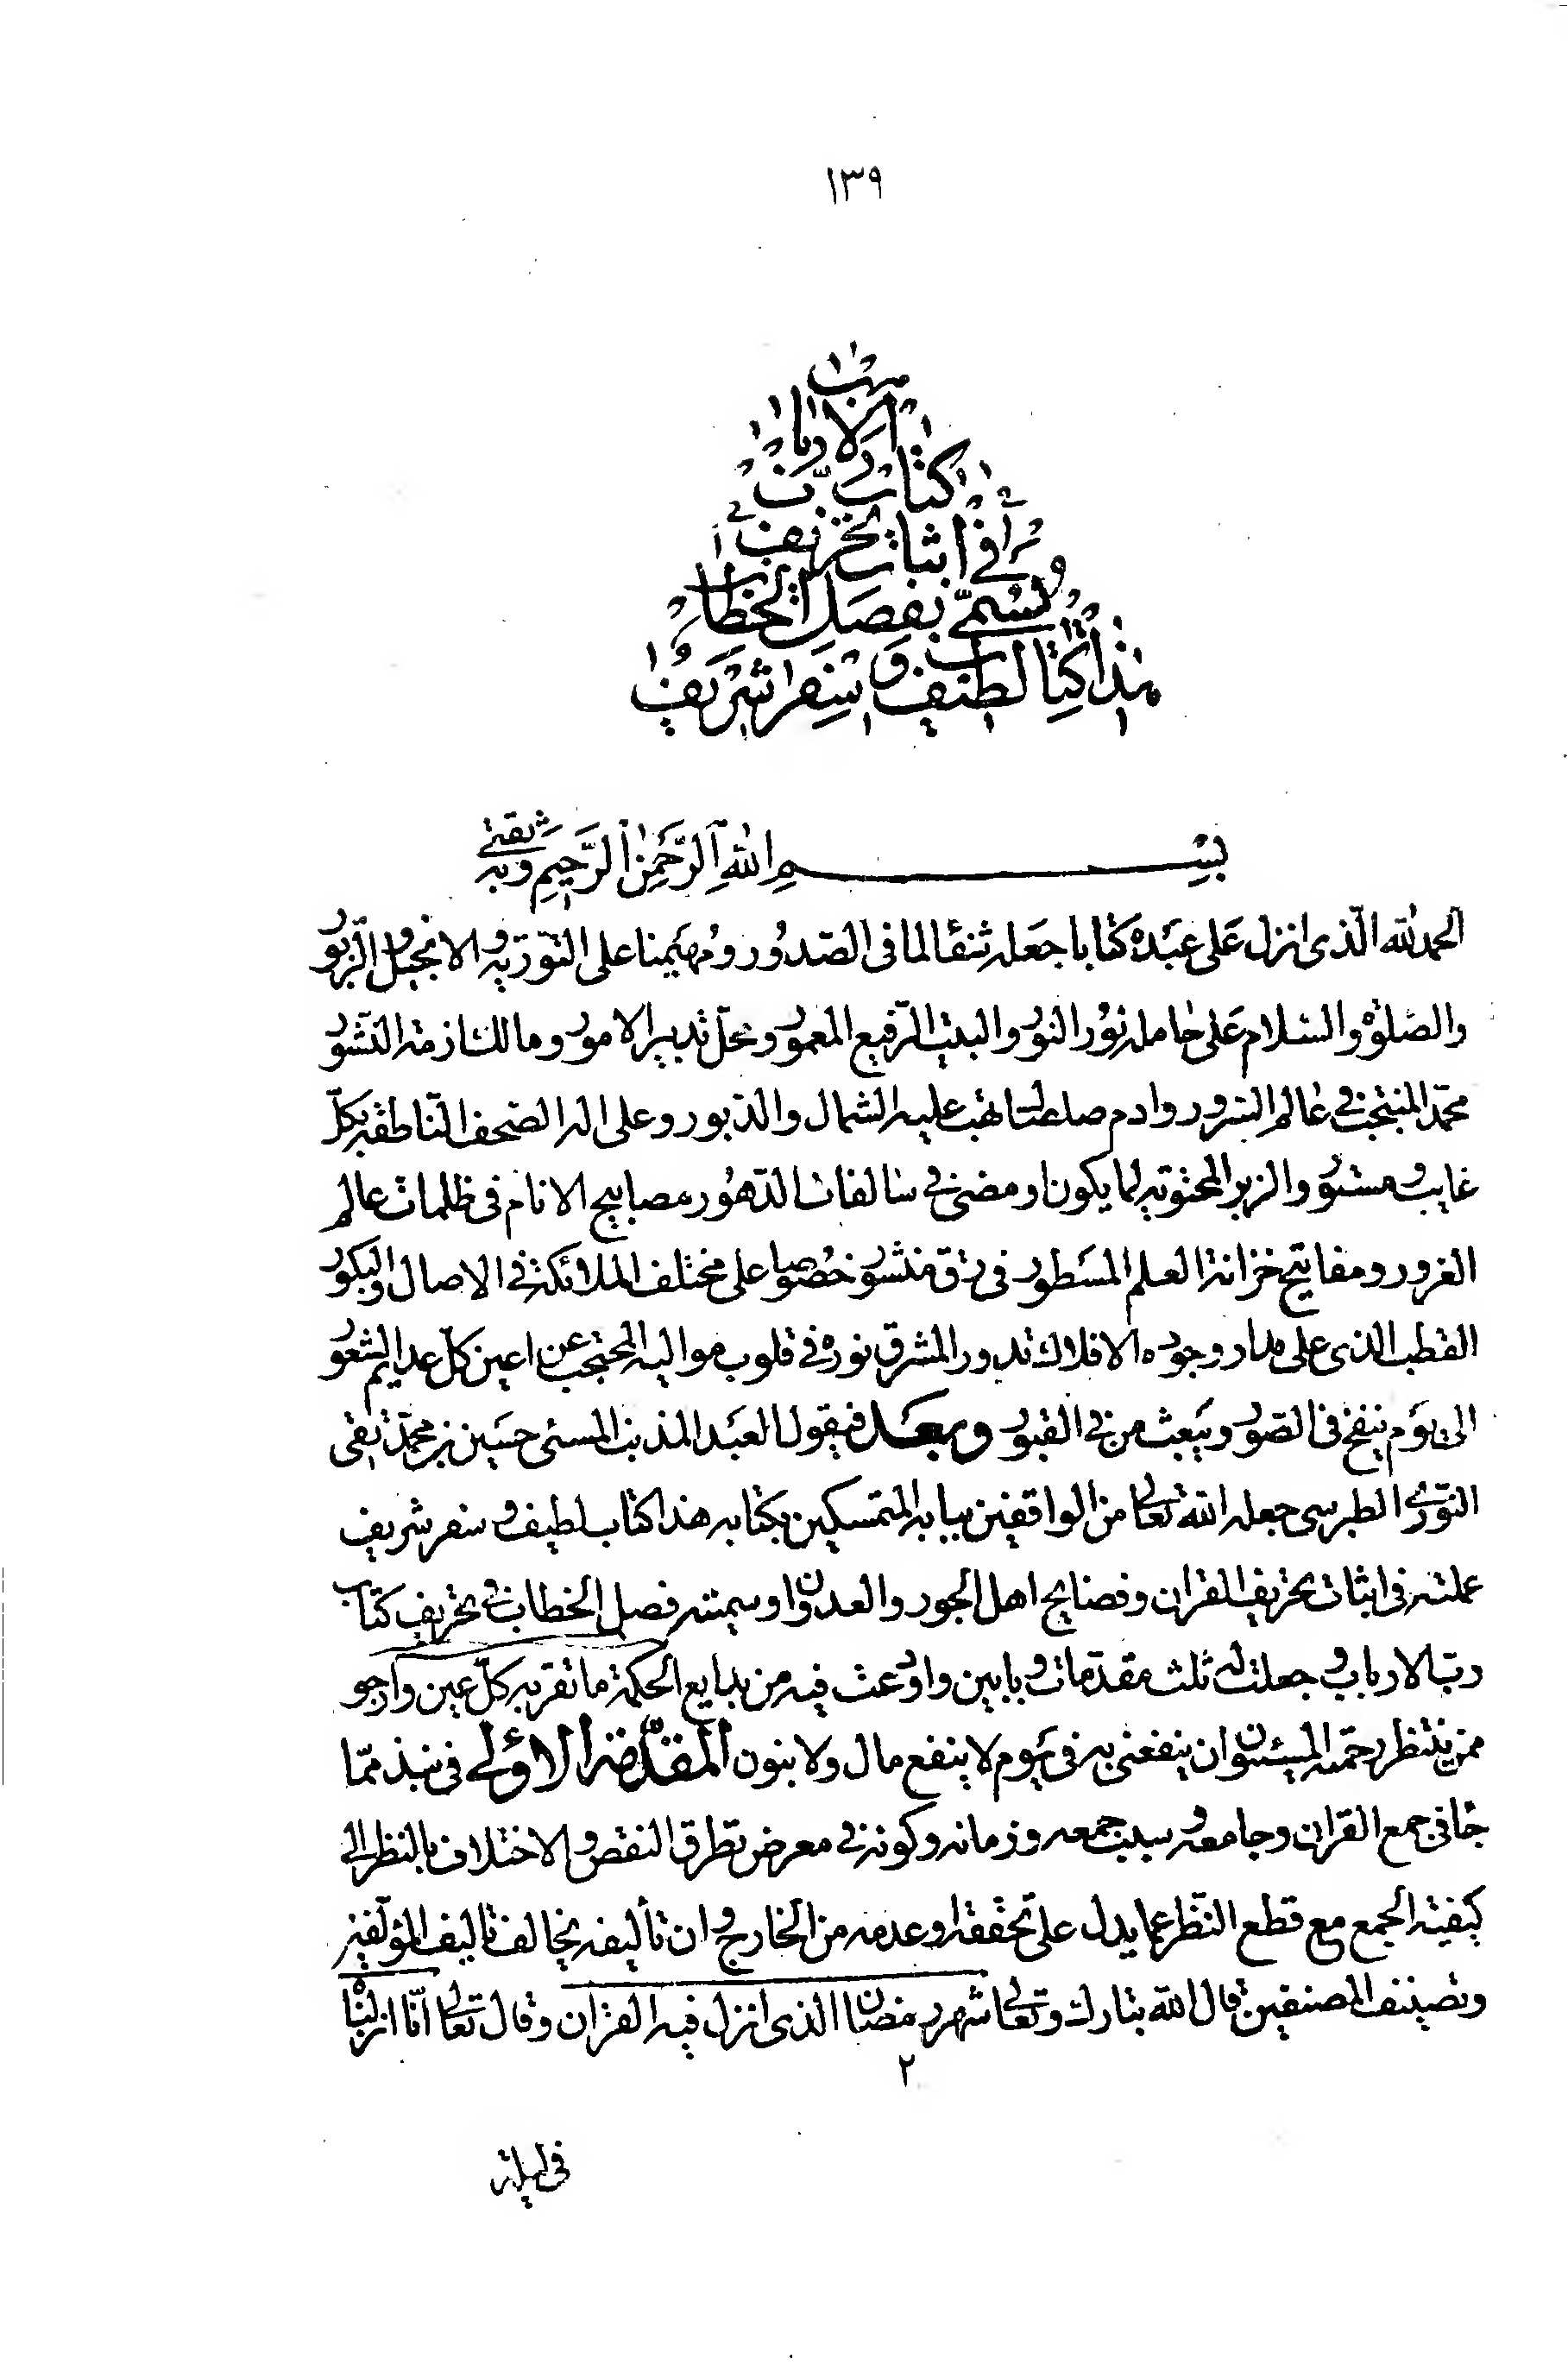 ١٣٩
مبين
رب الارباب
كتاب
في اثبات تحريف
يسمى بفصل الخطاب
هذا كتاب لطيف و سفر شريف
بسم الله الرحمن الرحيم وبه ثقتى
الحمد لله الذى انزل على عبده كتابا جعله شفآء لما فى الصدور ومهيمنا على التورية والانجيل والزبور
والصلوة والسلام على حامله نور النور والبيت الرفيع المعمور ومحل تدبير الامور ومالك ازمة النشور
محمد المنتجب فى عالم السرور وادم صلصلة تهب عليه الشمال والدبور وعلى اله الصحف الناطقة بكل
غايب ومستور والزبر المحتوية لما يكون او مضى فى سالفات الدهور مصابيح الانام فى ظلمات عالم
الغرور ومفاتيح خزانة العلم المسطور فى رق منشور خصوصا على مختلف الملائكة فى الاصال والبكور
القطب الذى على مدار وجوده الافلاك تدور المشرق نوره فى قلوب مواليه المحتجب عن اعين كل عديم الشعور
الى يوم ينفخ فى الصور ويبعث من فى القبور وبعد فيقول العبد المذنب المسئ حسين بن محمد تقى
النورى الطبرسى جعله الله تعالى من الواقفين ببابه المتمسكين بكتابه هذا كتاب لطيف وسفر شريف
عملته فى اثبات تحريف القران وفضايح اهل الجور والعدوان وسميته فصل الخطاب فى تحريف كتاب
رب الارباب وجعلت له ثلث مقدمات وبابين واودعت فيه من بدايع الحكمة ما تقر به كل عين وارجو
ممن ينتظر رحمته المسيئون ان ينفعنى به فى يوم لا ينفع مال ولا بنون المقدمة الاولى فى نبذ مما
جاء فى جمع القران وجامعه وسبب جمعه وزمانه وكونه فى معرض تطرق النقص والاختلاف بالنظر الى
كيفية الجمع مع قطع النظر عما يدل على تحققه او عدمه من الخارج وان تأليفه يخالف تاليف المؤلفين
وتصنيف المصنفين قال الله تبارك وتعالى شهر رمضان الذى انزل فيه القران وقال تعالى انا انزلناه
٢
فى ليلة